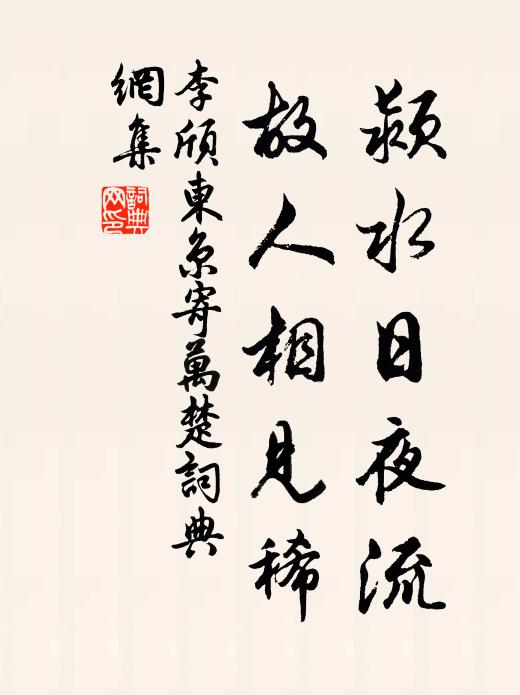 颍水日夜流
故人相見稀
李頎東京寄萬楚詞典
網集
詞典網印